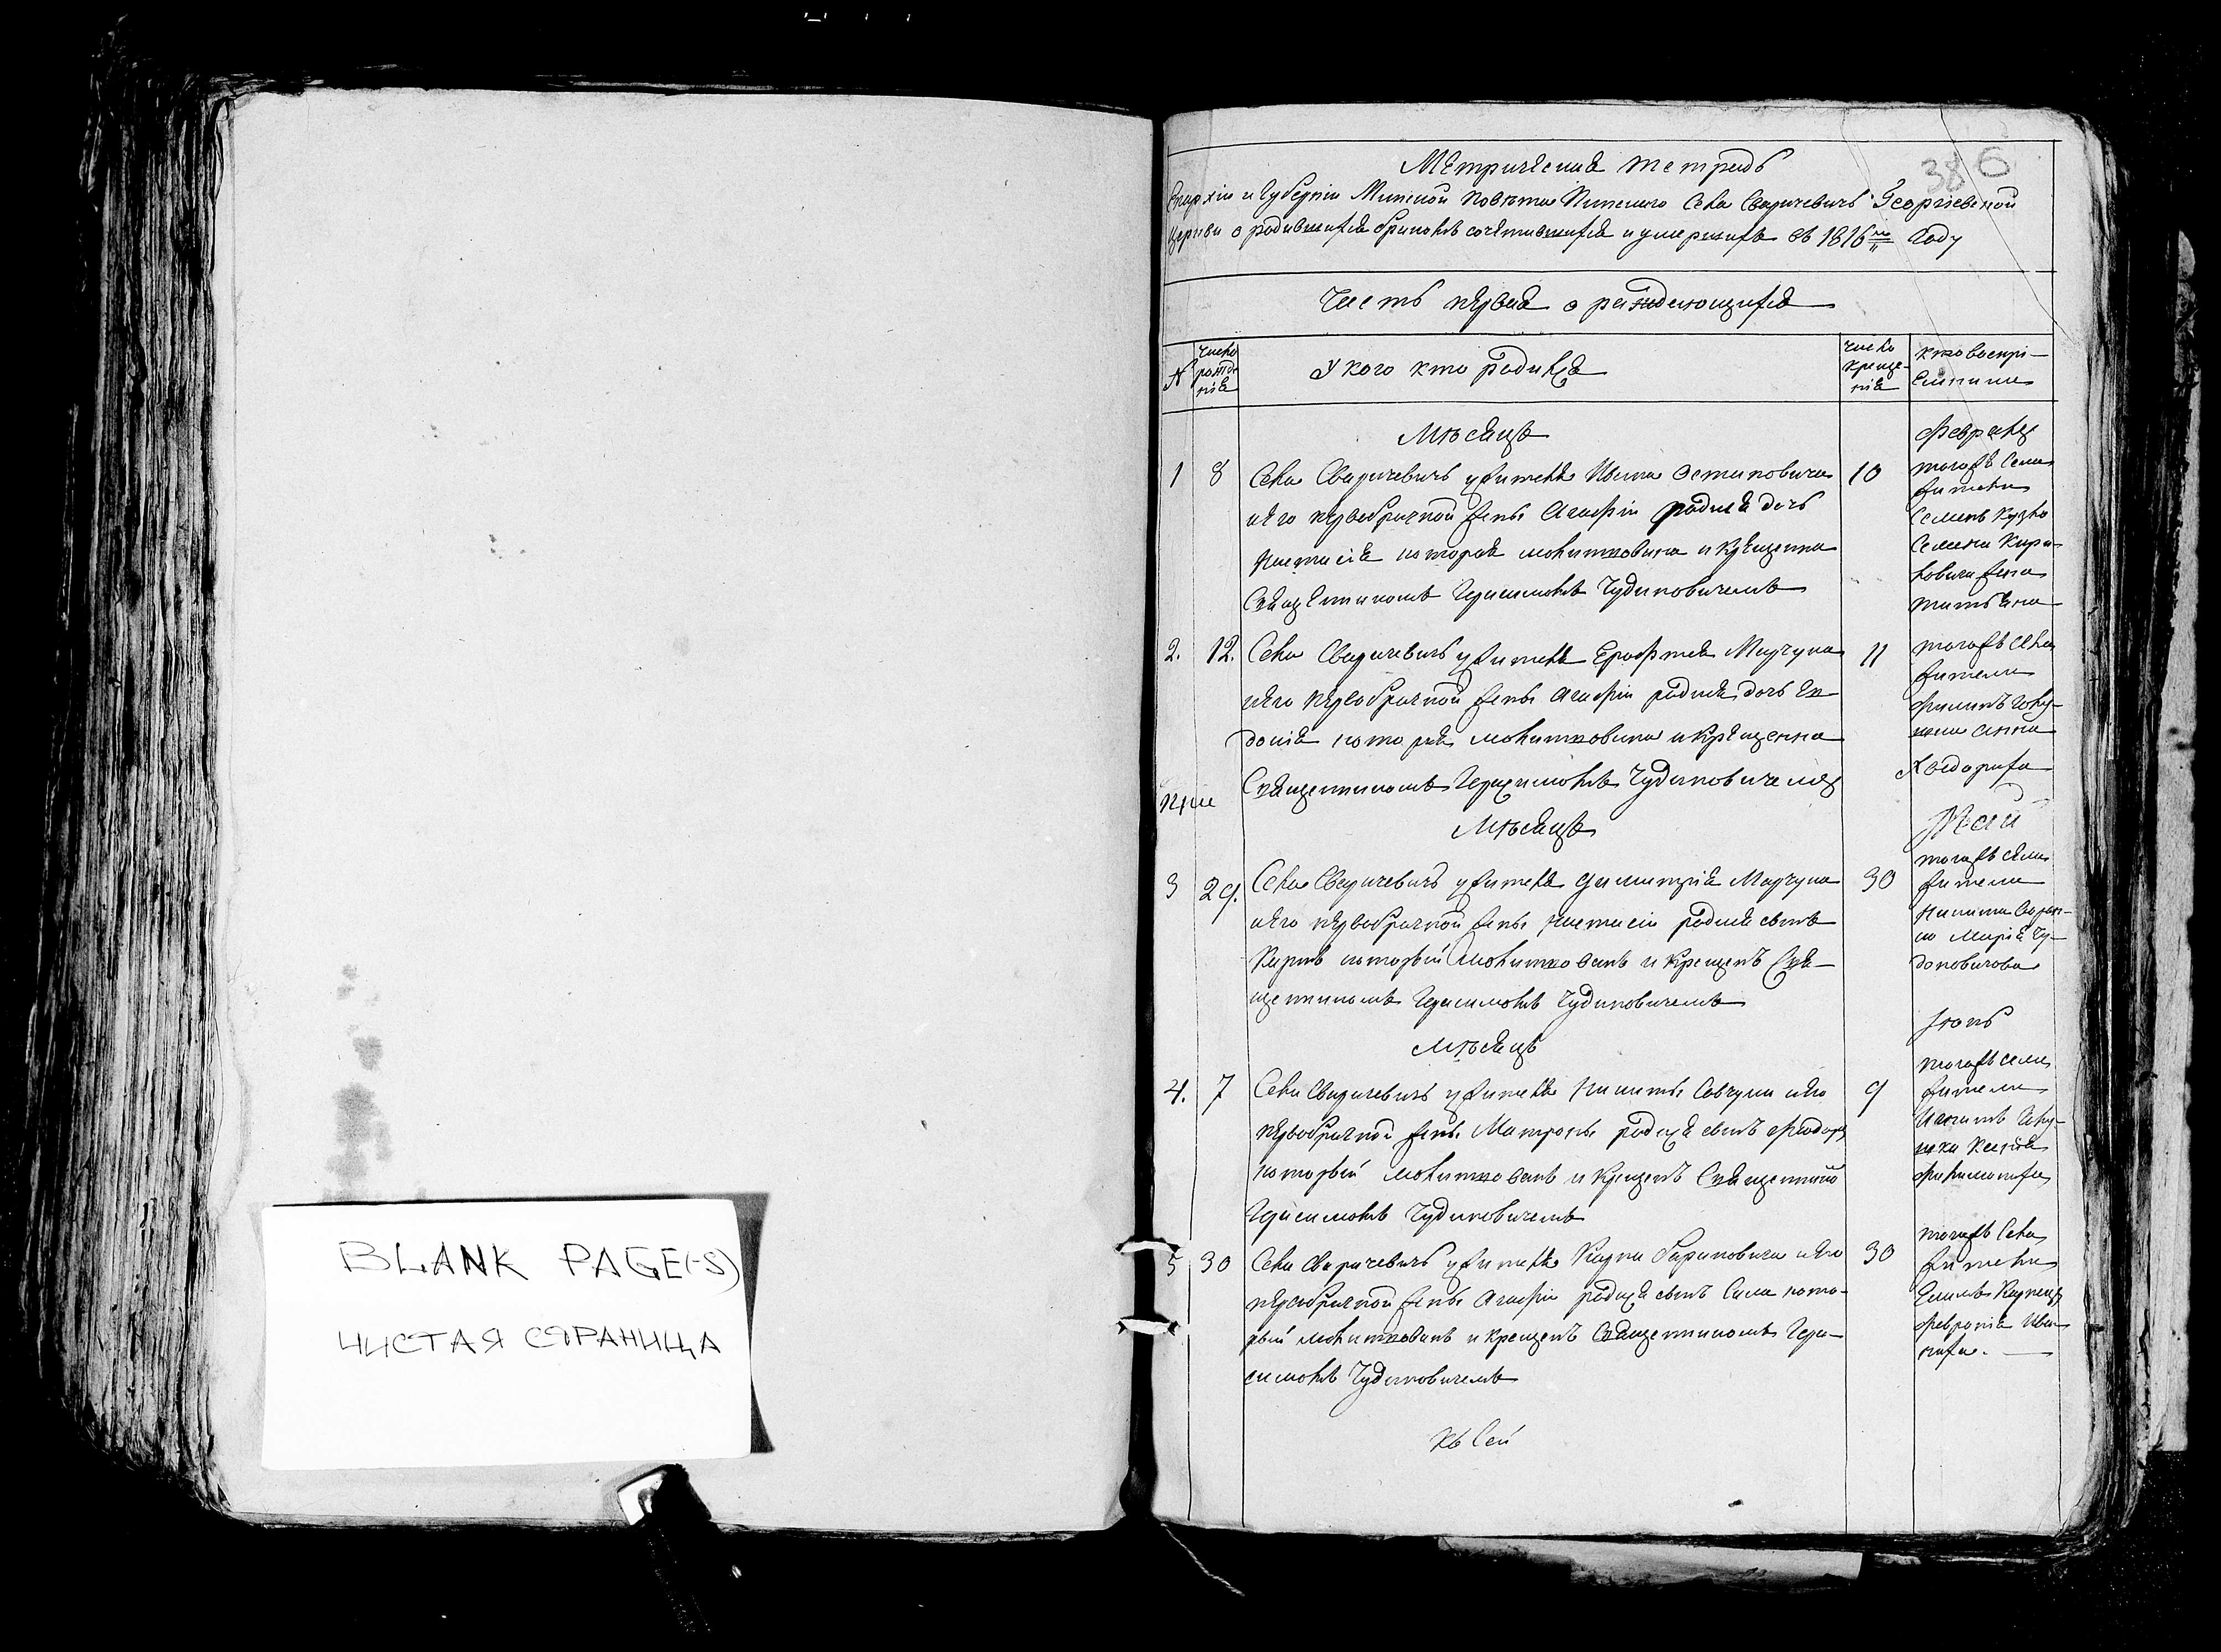 BLANK PAGE(-S)
ЧИСТАЯ СТРАНИЦА
386
Метрическая тетрадь
Епархіи и Губерніи Минской Повѣта Пинского Села Сваричевичь Георгіевской
Церкви о родившихся бракомъ сочетавшихся и умершихъ въ 1816го Году
Часть первая о раждающихся
N
число рожде нія
У кого кто родился
число креще- нія
кто воспрі- емники
Мѣсяцъ
Февраль
1 8
Села Сваричевичь у жителя Ивана Остаповича
и его первобрачной жены Агафіи родися дочь
Настасія которая молитвована и крещенна
Священникомъ Герасимомъ Чудиновичемъ
10
тогожъ села
жители
Семена
жена
Татьяна
2. 12.
Села Сваричевичь у жителя Ерофтея Марчука
и его первобрачной жены Агафіи родися дочь Ев
докія которая молитвована и крещенна
Священникомъ Герасимомъ Чудиновичемъ
11
тогожъ села
жители
Филипъ
Мѣсяцъ
Май
3 29.
Села Сваричевичь у жителя Димитрія Марчука
и его первобрачной жены Настасіи родися сынъ
Карпъ который молитвованъ и крещенъ Свя-
щенникомъ Герасимомъ Чудиновичемъ
30
тогожъ села
жители
Никита
Марія Чу-
доновичова
Мѣсяцъ
Іюнь
4. 7
Села Сваричевичь у жителя Никиты Савчука и его
первобрачной жены Матроны родися сынъ Феодоръ
который молитвованъ и крещенъ Священнико
Герасимомъ Чудиновичемъ
9
тогожъ села
жители
5 30
Села Сваричевичь у жителя Карпа и его
первобрачной жены Агафіи родися сынъ Сила кото-
рый молитвованъ и крещенъ Священникомъ Гера-
симомъ Чудиновичемъ
30
тогожъ села
жители
Февронія Ива-
ниха.
Къ сей